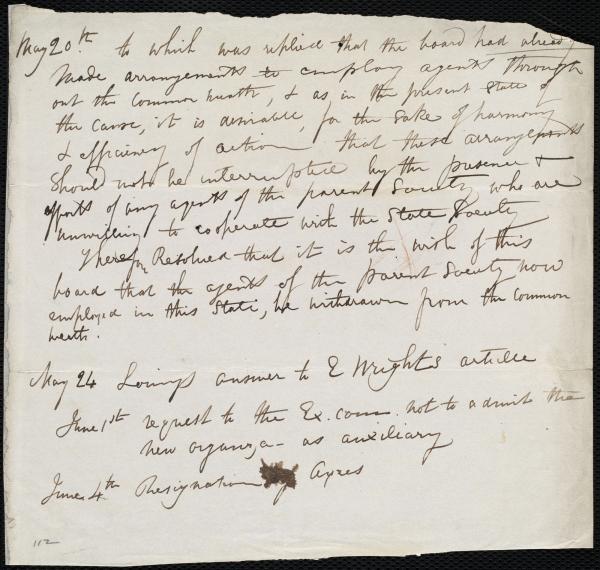 May 20.th to which was replied that the board had already
made arrangements to employ agents through
out the Common wealth, & as in the present State of
the Cause, it is desirable, for the Sake of harmony
& efficiency of action that these arrangements
Should not be interrupted by the presence &
efforts of any agents of the parent Society who are
unwilling to cooperate with the State Society
Therefore Resolved that it is the wish of this
board that the agents of the parent Society now
employed in this State, be withdrawn from the Common
wealth.
May 24 Loring's answer to E Wright's article
June 1st request to the Ex. com. not to admit the
new organiza- as auxiliary
June 4th Resignation of Ayres
112